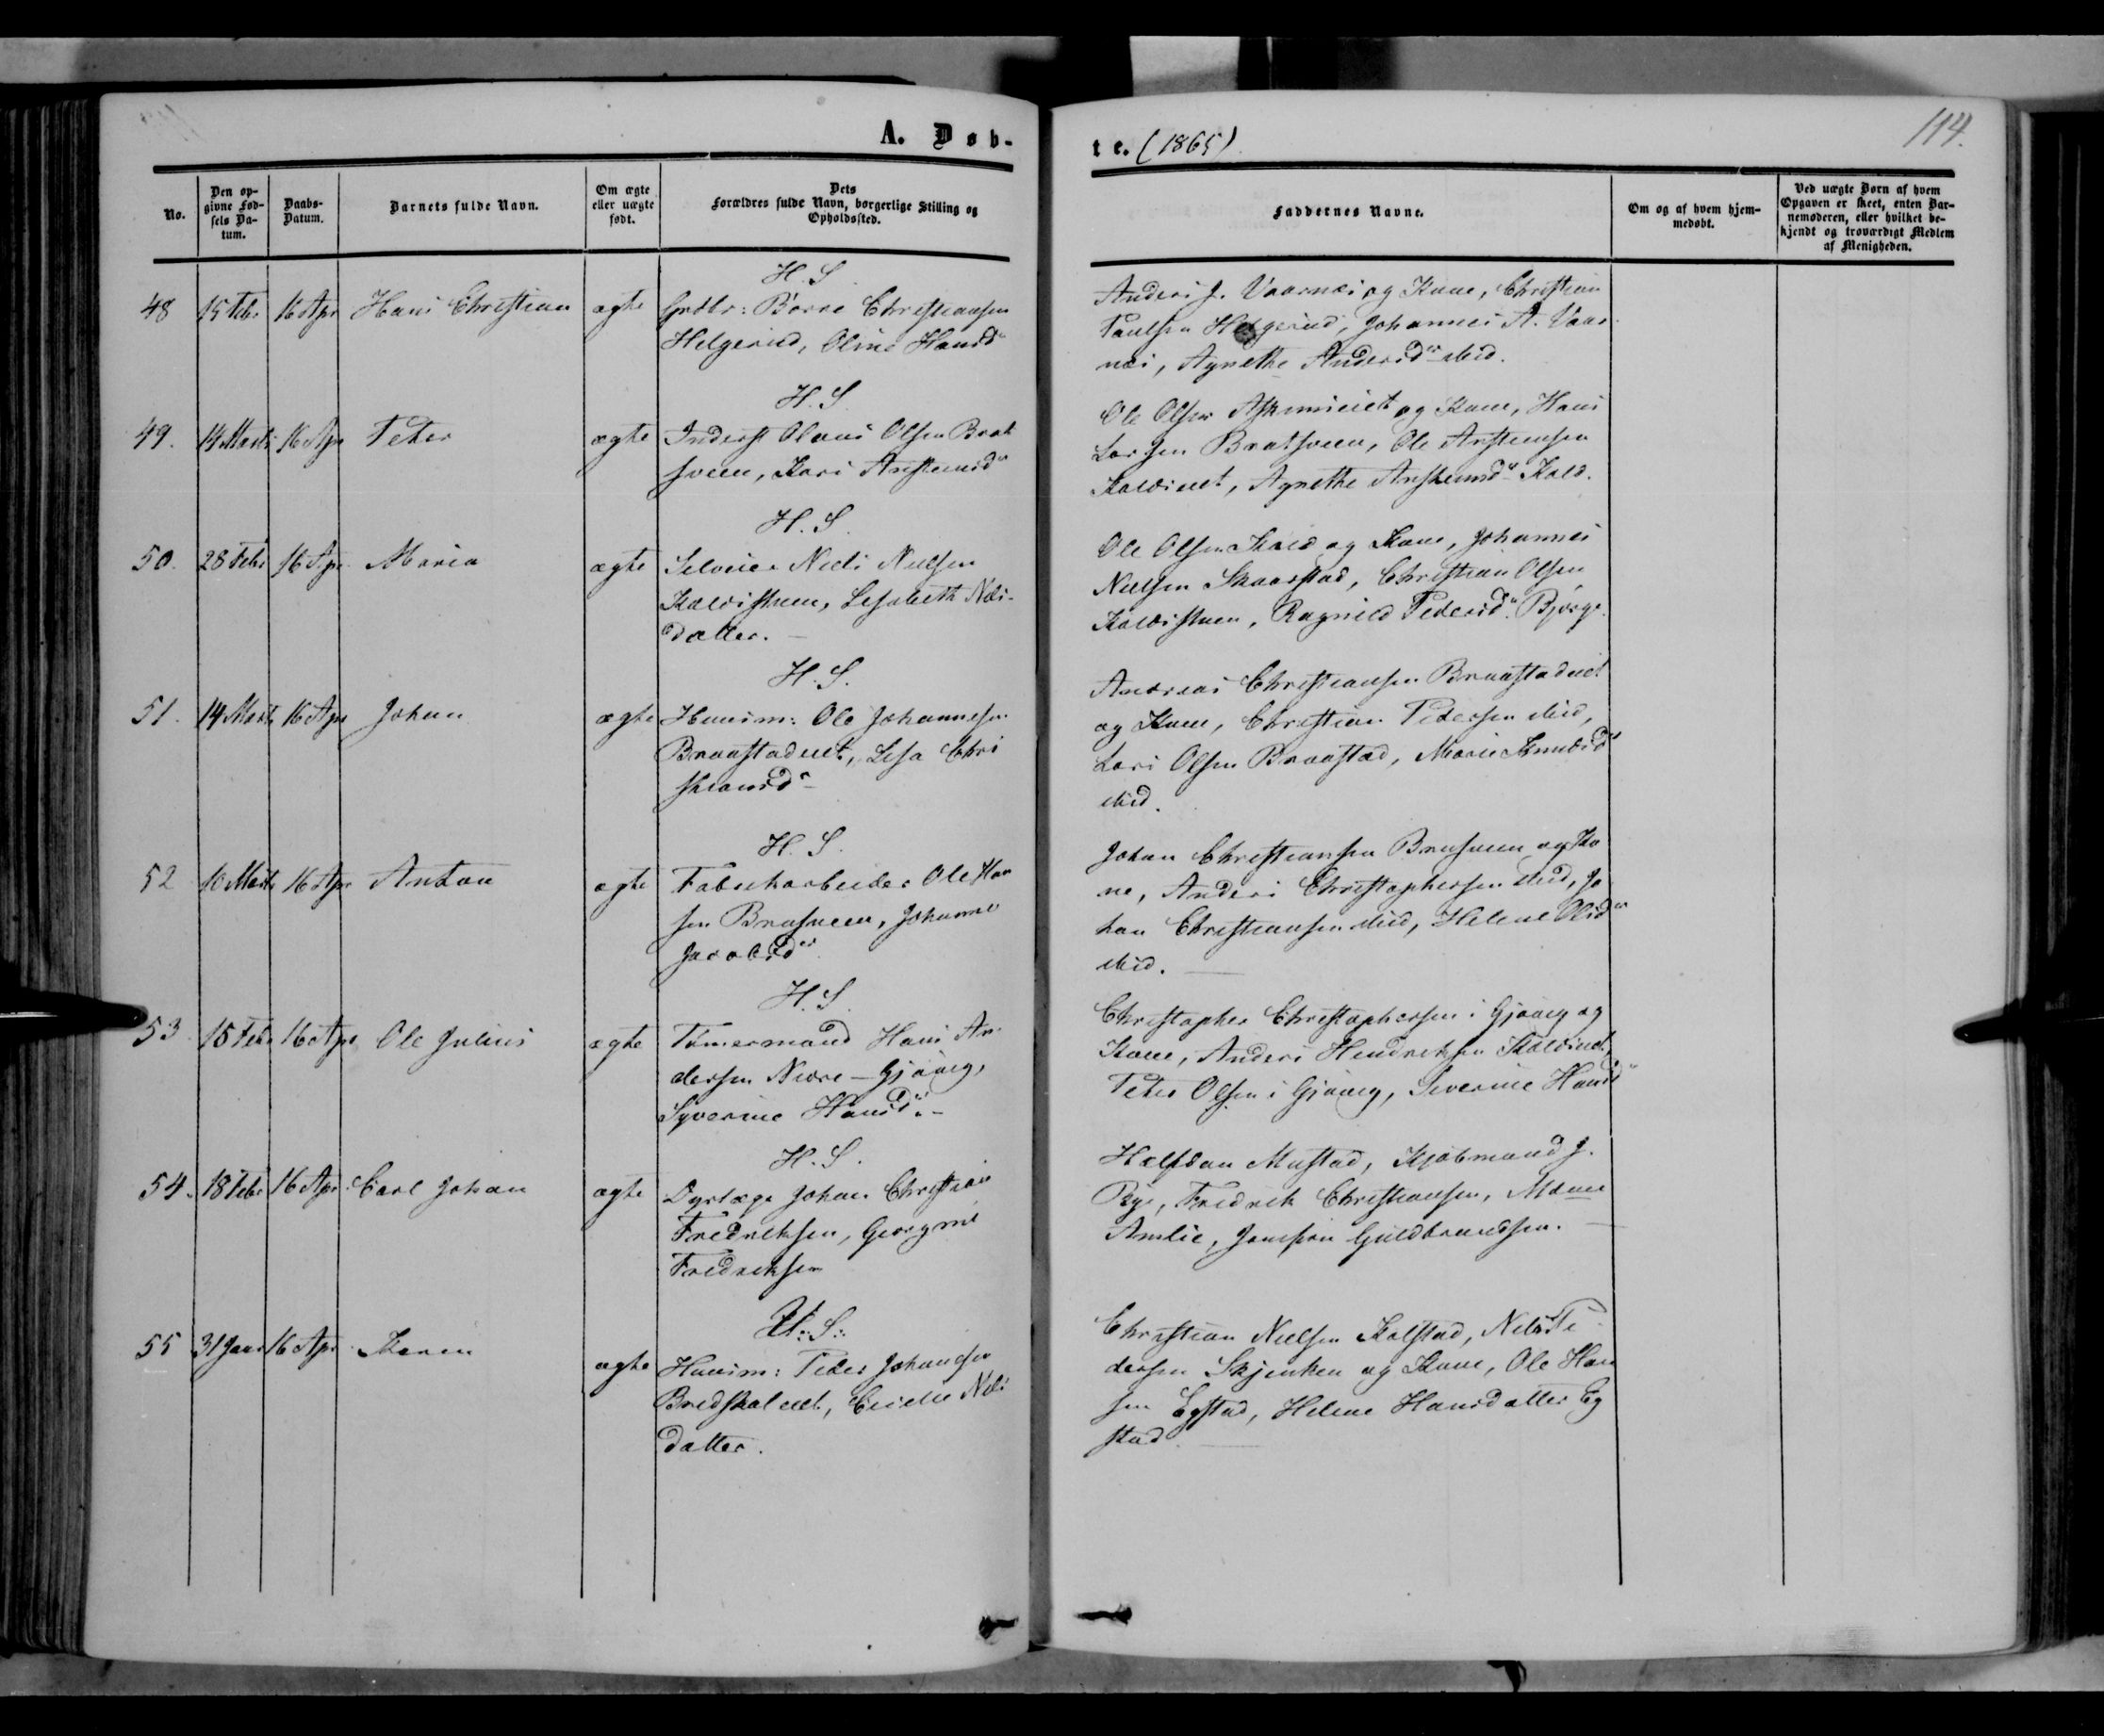 A. Døb-
te. (1865)
114.
No.
Den op-
givne Fød-
sels Da-
tum.
Daabs-
Datum.
Barnets fulde Navn.
Om ægte
eller uægte
født.
Dets
Forældres fulde Navn, borgerlige Stilling og
Opholdssted.
Faddernes Navne.
Om og af hvem hjem-
medøbt.
Ved uægte Børn af hvem
Opgaven er skeet, enten Bar-
nemoderen, eller hvilket be-
kjendt og troværdigt Medlem
af Menigheden.
H. S.
48 15 Febr 16 Apr Hans Christian ægte Grdbr: Børre Christiansen
Helgerud, Oline Hansd
Anders J. Vaarnæs og Kone, Christian
Paulsen Helgerud, Johannes A. Vaar
næs, Agnethe Andersdr ibid.
H. S.
49. 14 Marts 16 Apr Peter ægte Inderst Olaus Olsen Brat
sveen, Kari Anstensdr
Ole Olsen og Kone, Hans
Larsen Bratsveen, Ole Anstensen
Koldeiet, Agnethe Anstensdr Kold.
H. S.
50. 28 Febr 16 Apr Maria ægte Selveier Niels Nielsen
Lisabeth Nils-
datter. –
Ole Olsen og Kone, Johannes
Nielsen Skaarstad, Christian Olsen
Ragnild Pedersdr. Bjørge.
H. S.
51. 14 Marts 16 Apr Johan ægte Huusm: Ole Johannesen
Braastadeiet, Lisa Chri
stiansdr –
Andreas Christiansen Braastadeiet
og Kone, Christian Pedersen ibid,
Lars Olsen Braastad, Marie Knudsdr
ibid.
H. S.
52 10 Marts 16 Apr Anton ægte Fabrikarbeider Ole Han
sen Brusveen, Johanne
Jacobsdr
Johan Christiansen Brusveen og Ko
ne, Anders Christophersen ibid, Jo
han Christiansen ibid, Helene Olsdr
ibid. –
H. S.
53. 15 Febr 16 Apr Ole Julius ægte Tømermand Hans An
dersen Nedre – Gjøvig,
Syverine Hansdr. –
Christopher Christophersen i Gjøvig og
Kone, Anders Hendriksen
Peter Olsen i Gjøvig, Severine Hansdr
H. S.
54. 18 Febr 16 Apr Carl Johan ægte Dyrlæge Johan Christian
Fredriksen, Georgine
Fredriksen
Halfdan Mustad, Kjøbmand J.
Rye, Fredrik Christiansen, Mdme
Amlie, Jomfru Guldbrandsen. –
U.: S.:
55 31 Janr 16 Apr Karen ægte Huusm: Peder Johansen
Bredskaleiet, Cicilie Nils
datter.
Christian Nielsen Kalstad, Nils Pe
dersen Skjenken og Kone, Ole Han
sen Egstad, Helene Hansdatter Eg
stad. –